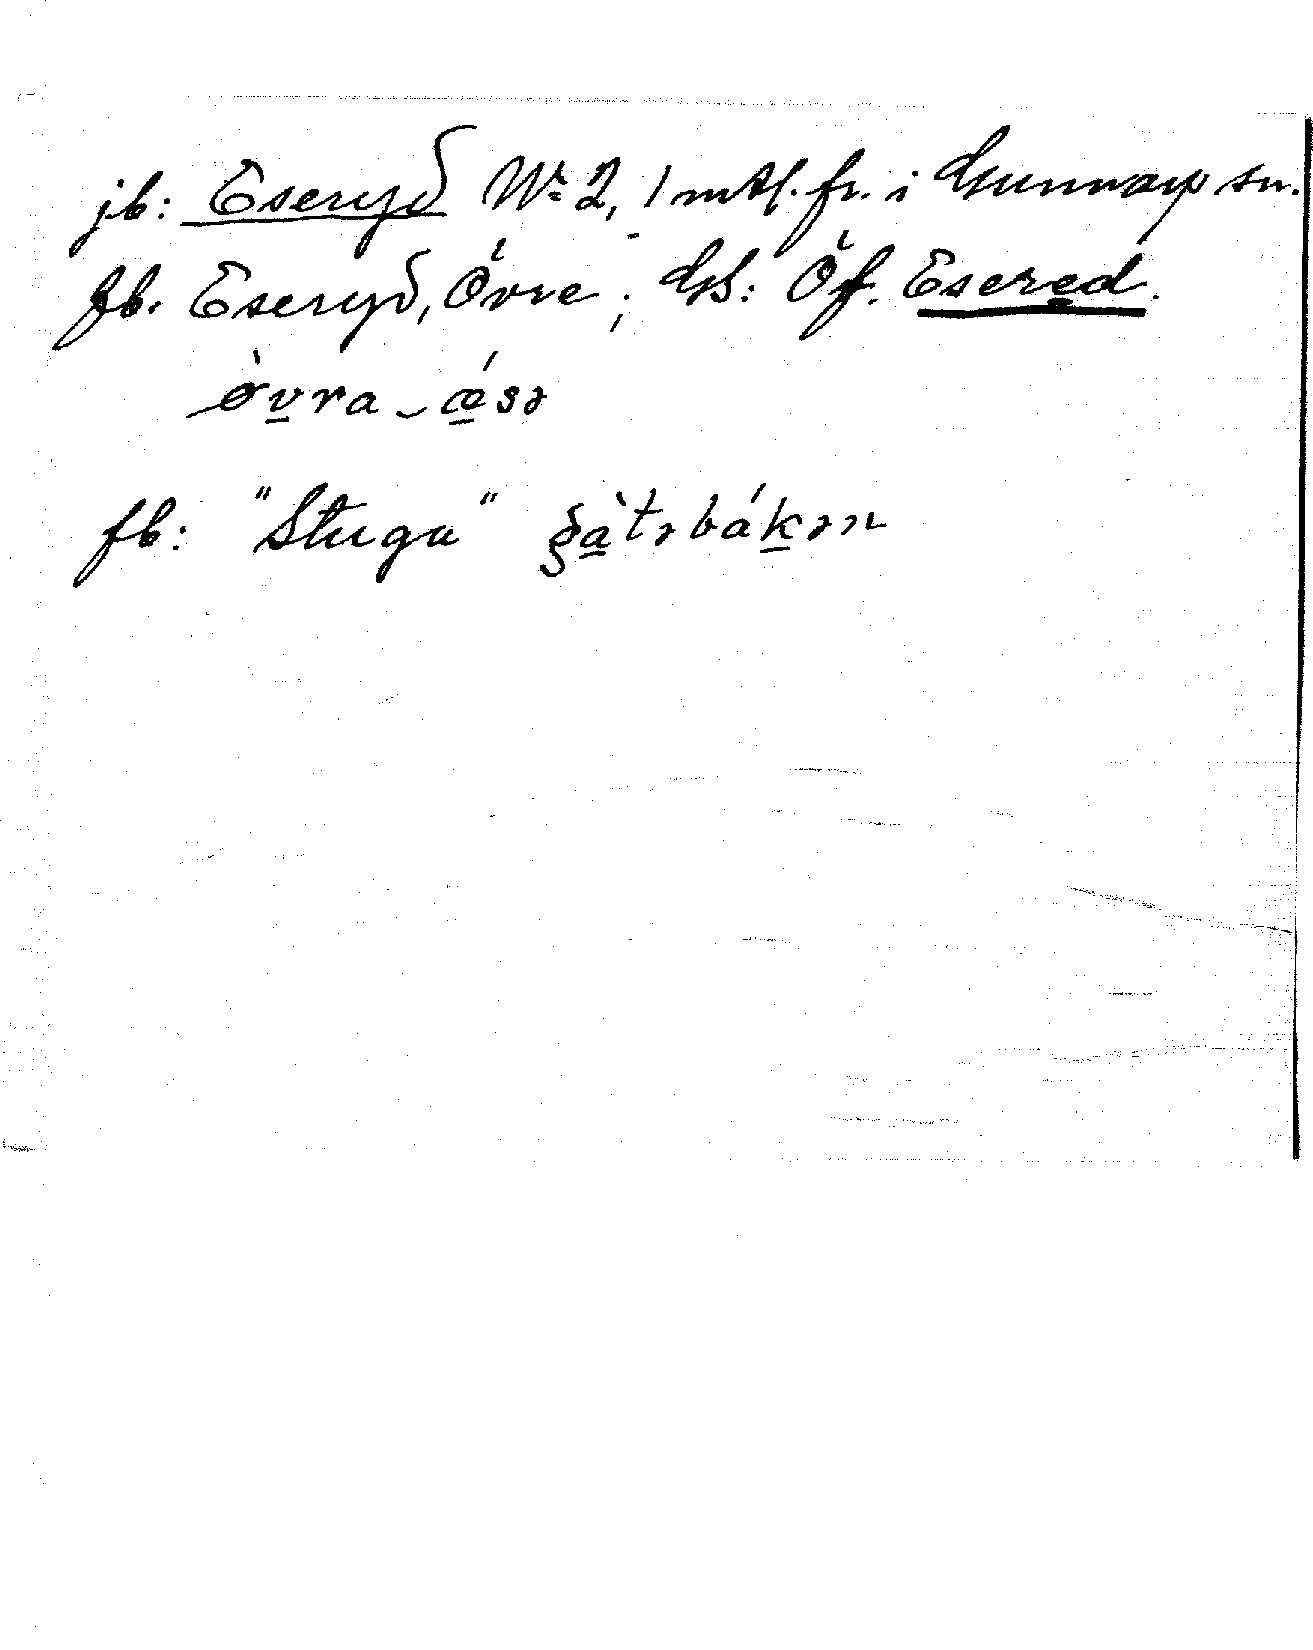 jb: Eseryd No 2, 1 mtl. fr. i Gunnarp sn.
fb. Eseryd, Övre; GS: Öf. Esered.
ø̀vra ‿ ǽsə
fb: "Stuga" gàtəbákən